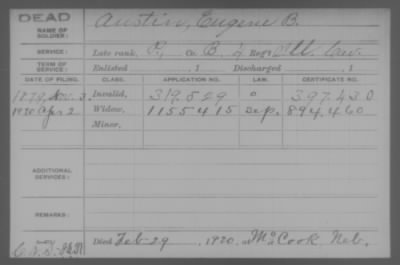 DEAD
NAME OF SOLDIER: Austin, Eugene B.
SERVICE: Late rank, P, Co. B, 4 Reg't Cav.
TERM OF SERVICE: Enlisted , 1 Discharged , 1
DATE OF FILING. CLASS. APPLICATION NO. LAW. CERTIFICATE NO.
1879, Nov. 3. Invalid, 319.529 397.430
1920 Apr 2 Widow, 1155415 Dep. 894.460
Minor,
ADDITIONAL SERVICES:
REMARKS:
Died Feb 29, 1920, at McCook Neb.